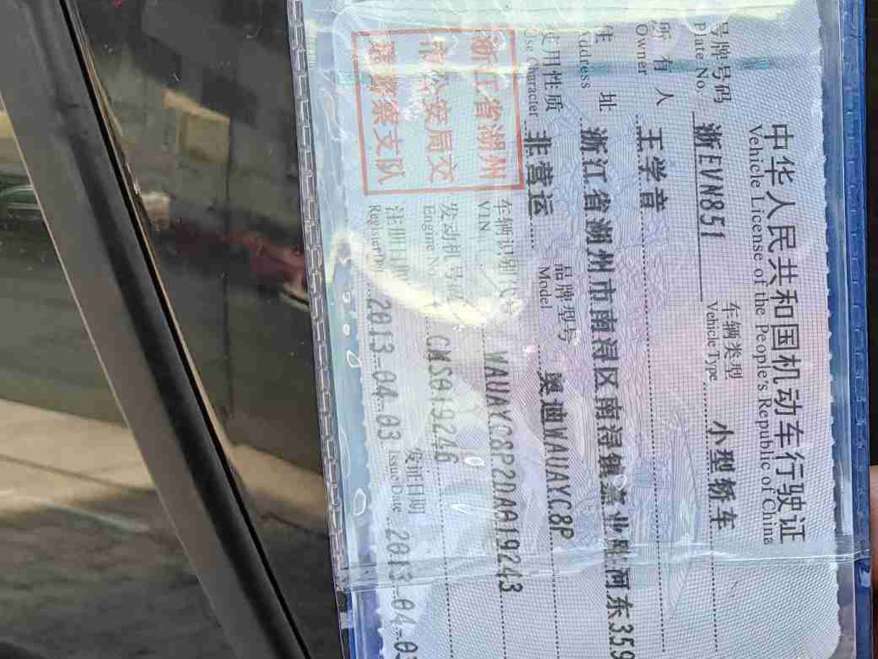 中华人民共和国机动车行驶证
Vehicle License of the People's Republic of China
号牌号码 浙EVN851 车辆类型 小型轿车
Plate No. Vehicle Type
所有人 王学音
Owner
住址 浙江省湖州市南浔区南浔镇嘉业路河东359
Address
使用性质 非营运 品牌型号 奥迪WAUAYC8P
Use Character Model
浙江省湖州
市公安局交
通警察支队
车辆识别代号 WAUAYC8P2DA019243
VIN
发动机号码 CMS019246
Engine No.
注册日期 2013-04-03 发证日期 2013-04-03
Register Date Issue Date